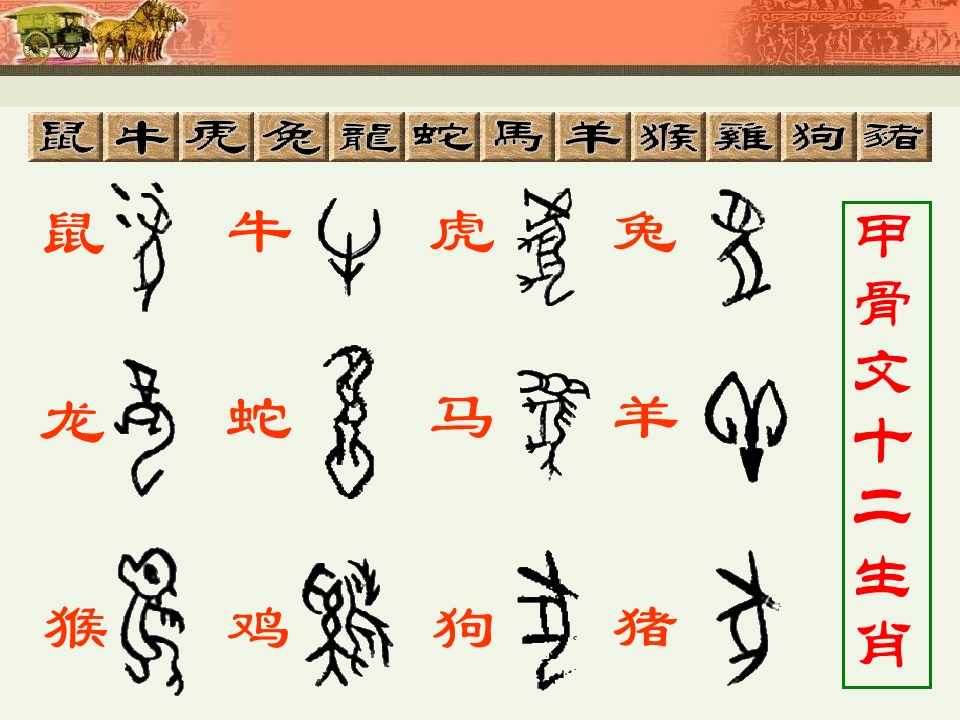 鼠牛虎兔龍蛇馬羊猴雞狗豬
鼠 牛 虎 兔
龙 蛇 马 羊
猴 鸡 狗 猪
甲骨文十二生肖